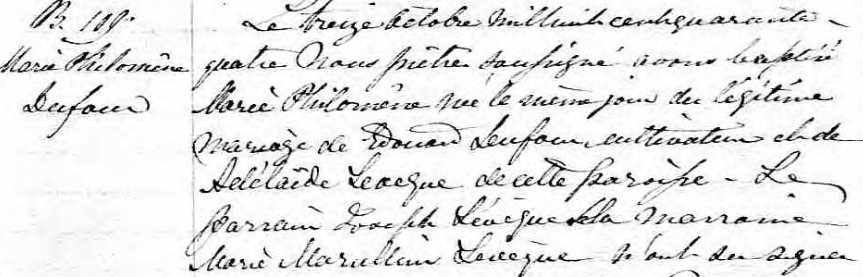 B. 109.
Marie Philomène
Dufour
Le treize Octobre mil huit cent quarante-
quatre Nous prêtre soussigné avons baptisé
Marie Philomène née le même jour du légitime
mariage de Edouard Dufour, cultivateur et de
Adélaïde Levêque de cette paroisse - Le
parrain Joseph Lévêque & la marraine
Marie Levêque n'ont su signer